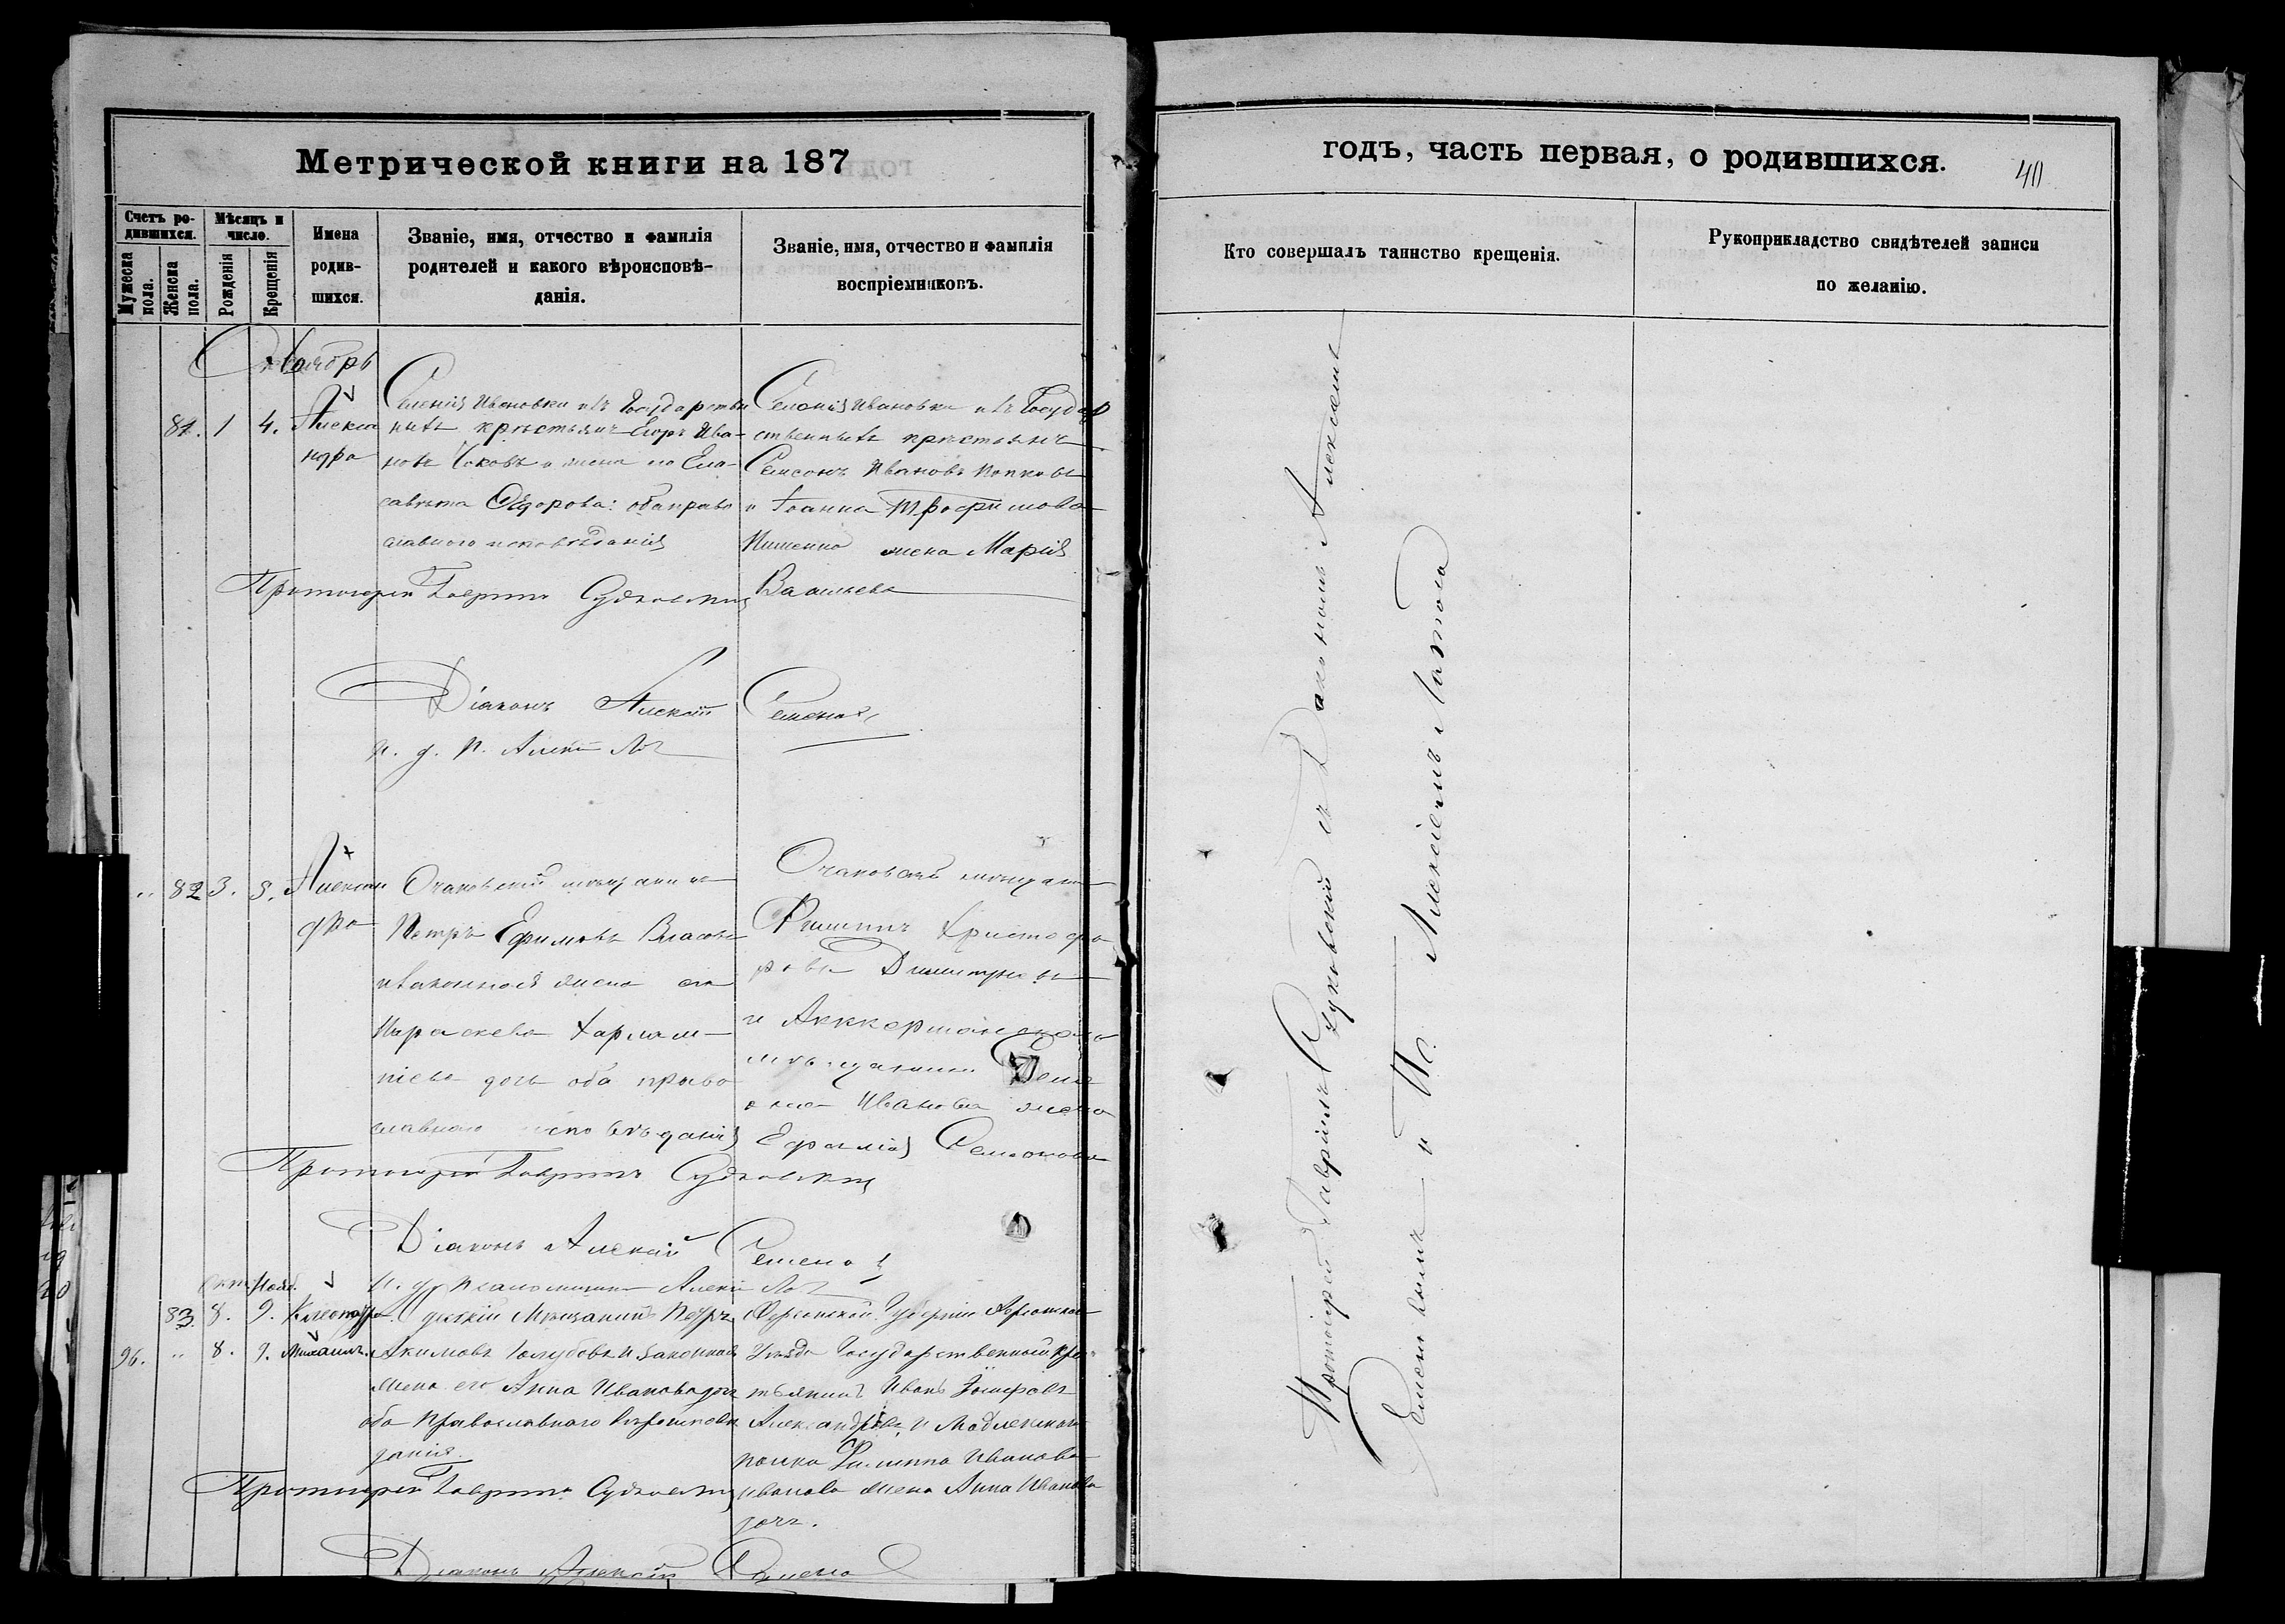 Метрической книги на 187
Счетъ ро-
дившихся.
Мужеска
пола.
Женска
пола.
Мѣсяцъ и
число.
Рожденія
Крещенія
Имена
родив-
шихся.
Званіе, имя, отчество и фамилія
родителей и какого вѣроисповѣ-
данія.
Званіе, имя, отчество и фамилія
воспріемниковъ.
Октябрь
81. 1 4. Алекса
ндра
Селенія Ивановки изъ Государствен
ныхъ крестьянъ Егоръ Ива-
новъ и жена его Ели-
савета Ѳедорова: оба право
славного исповѣданія
Селенія Ивановки изъ Государ
ственныхъ крестьянъ
Самсонъ Ивановъ
и Іоанна Трофимова
жена Марія
Васильева
Протоіерей Гавріилъ Судковскій
Діаконъ Алексій Семеновъ
и. д. п. Алексій
82 3. 8. Алексан
дра
Очаковскій мѣщанинъ
Петръ Ефимовъ Власовъ
и законная жена его
Параскева Харлам-
піева дочь оба право
славнаго исповѣданія
Очаковскій мѣщанинъ
Филиппъ Христофо
ровъ Димитріевъ
и Аккерманскаго
мѣщанина
Иванова жена
Ефимія Семенова
Протоіерей Гавріилъ Судковскій
Діаконъ Алексій Семеновъ
И. д. Псаломщика Алексій
Окт. Нояб.
83. 8. 9. Клеопатра
96. " 8. 9. Михаилъ.
Одесскій Мѣщанинъ Петръ
Акимовъ Голубовъ и законная
жена его Анна Иванова дочь
оба Православнаго вѣроисповѣ
данія.
Херсонской Губерніи Херсонскаго
Уѣзда Государственный кре
стьянинъ Иванъ
Александровъ, и Модлинскаго
полка Филиппа Иванова
Иванова жена Анна Иванова
дочь.
Протоіерей Гавріилъ Судковскій
Діаконъ Алексій Семеновъ
годъ, часть первая, о родившихся.
40
Кто совершалъ таинство крещенія.
Рукоприкладство свидѣтелей записи
по желанію.
Протоіерей Гавріилъ Судковскій съ Діакономъ Алексіемъ
Семеновымъ и Пс. Алексіемъ